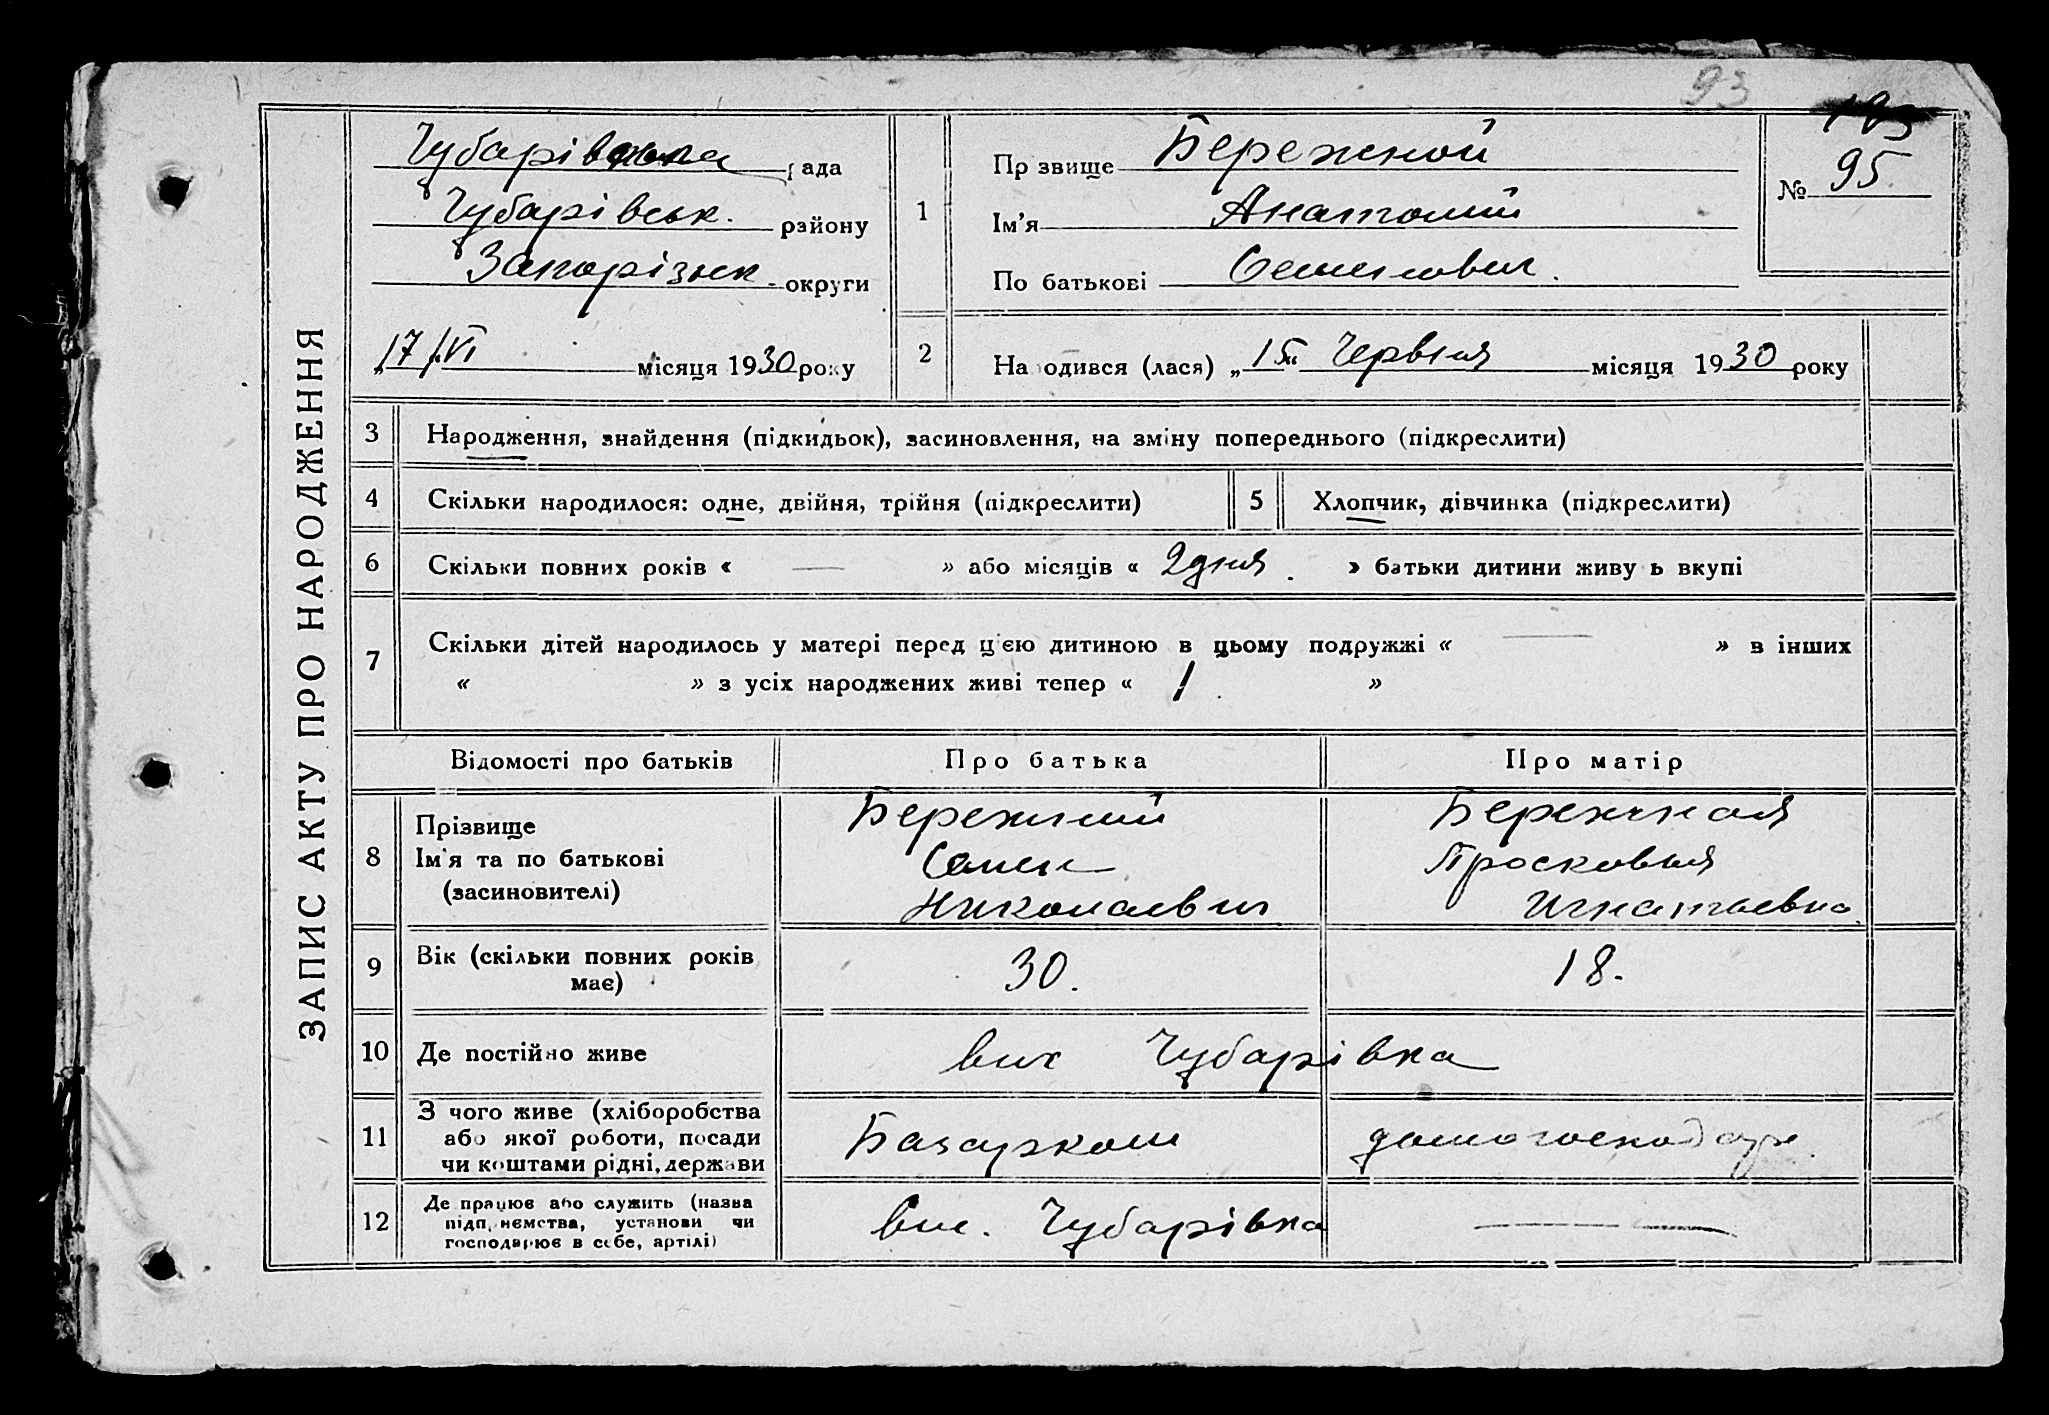 93
ЗАПИС АКТУ ПРО НАРОДЖЕННЯ
Чубарівська рада
Чубарівськ. району
Запорізьк. округи
„17/VI місяця 1930 року
1
Прізвище Бережной
Ім'я Анатолий
По батькові Семенович.
№ 95
2
Народився (лася) „15“ Червня місяця 1930 року
3 Народження, знайдення (підкидьок), засиновлення, на зміну попереднього (підкреслити)
4 Скільки народилося: одне, двійня, трійня (підкреслити)
5 Хлопчик, дівчинка (підкреслити)
6 Скільки повних років « — » або місяців « 2 дня. » батьки дитини живуть вкупі
7 Скільки дітей народилось у матері перед цією дитиною в цьому подружжі « — » в інших
« » з усіх народжених живі тепер « 1 »
Відомості про батьків Про батька Про матір
8 Прізвище Бережний Бережная
Ім'я та по батькові Семен Просковья
(засновителі) Николаевич Игнатьевна
9 Вік (скільки повних років має) 30. 18.
10 Де постійно живе Чубарівка
11 З чого живе (хліборобства
або якої роботи, посади
чи коштами рідні, держави
домогосподар.
12 Де працює або служить (назва
підприємства, установи чи
господарює в себе, артілі)
Чубарівка —